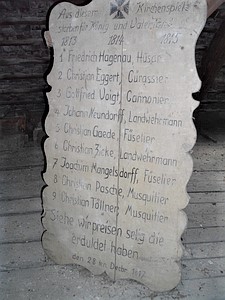 Aus diesem Kirchenspiele
starben für König und Vaterland
1813 1814 1815
1 Friedrich Hagenau, Husar
2 Christian Eggert, Cürassier
3 Gottfried Voigt, Cannonier
4 Johann Neundorff, Landwehrmann
5 Christian Gaede, Füselier
6 Christian Zicke, Landwehrmann
7 Joachim Mangelsdorff, Füselier
8 Christian Pasche, Musquitier
9 Christian Töllner, Musquitier
Siehe wir preisen selig die
erduldet haben
den 28